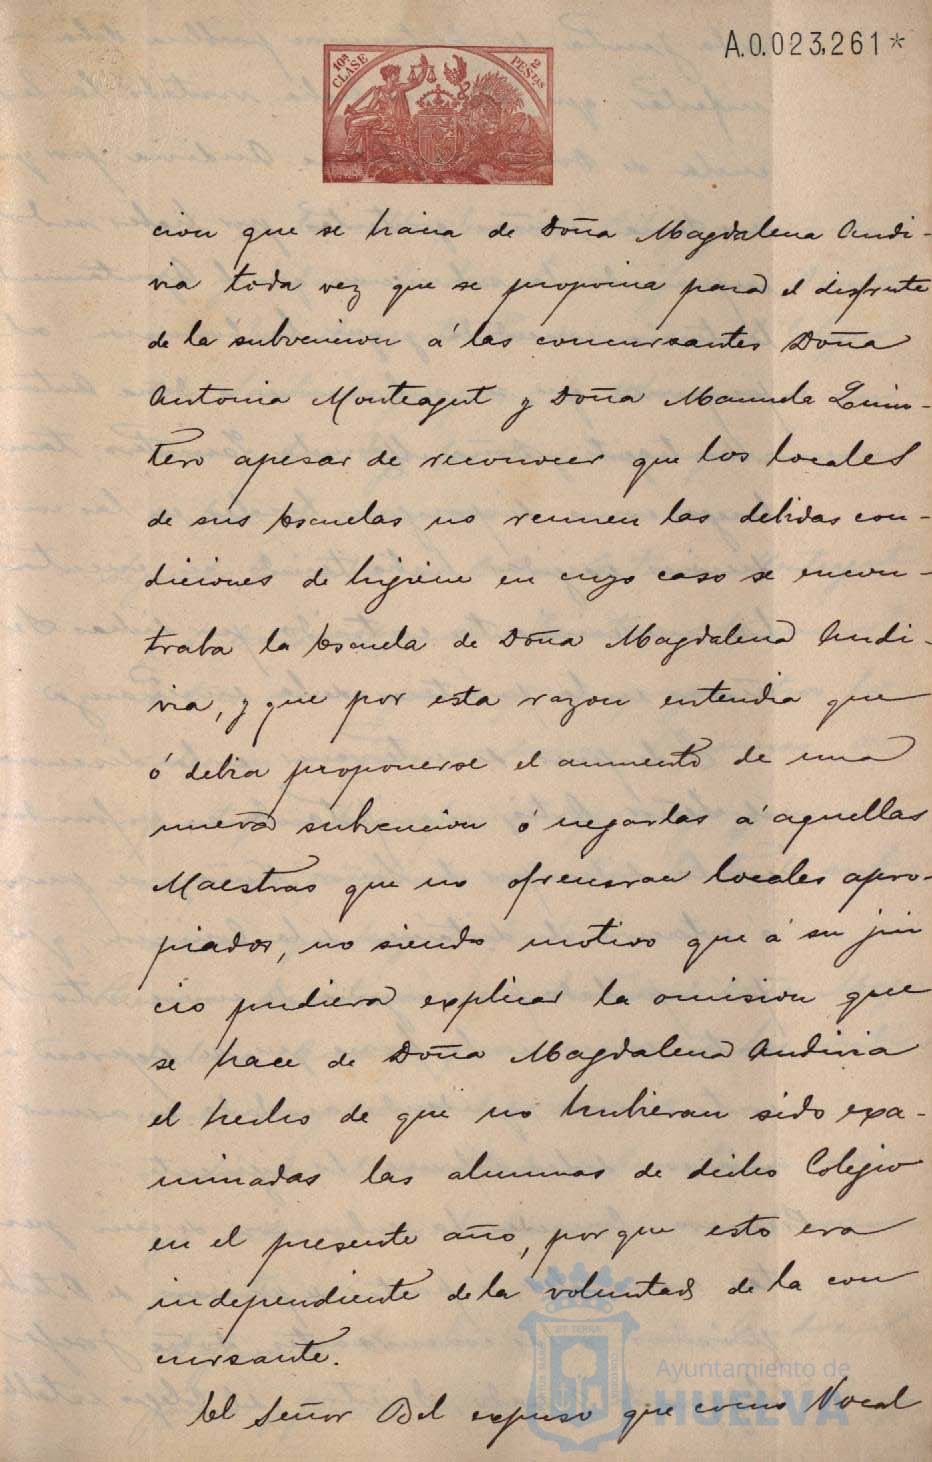 A.0.023,261*
10ª CLASE
2 PESETAS
cion que se hacia de Doña Magdalena Andi-
via toda vez que se proponia para el disfrute
de la subvencion á las concursantes Doña
Antonia Monteagut y Doña Manuela Quin-
tero apesar de reconocer que los locales
de sus Escuelas no reunen las debidas con-
diciones de higiene en cuyo caso se encon-
traba la Escuela de Doña Magdalena Andi-
via, y que por esta razon entendia que
ó debia proponerse el aumento de una
nueva subvencion ó negarlas á aquellas
Maestras que no ofrezcan locales apro-
piados, no siendo motivo que á su jui
cio pudiera explicar la omision que
se hace de Doña Magdalena Andivia
el hecho de que no hubieran sido exa-
minadas las alumnas de dicho Colegio
en el presente año, porque esto era
independiente de la voluntad de la con
cursante.
El Señor Bel expuso que como Vocal
Ayuntamiento de
HUELVA